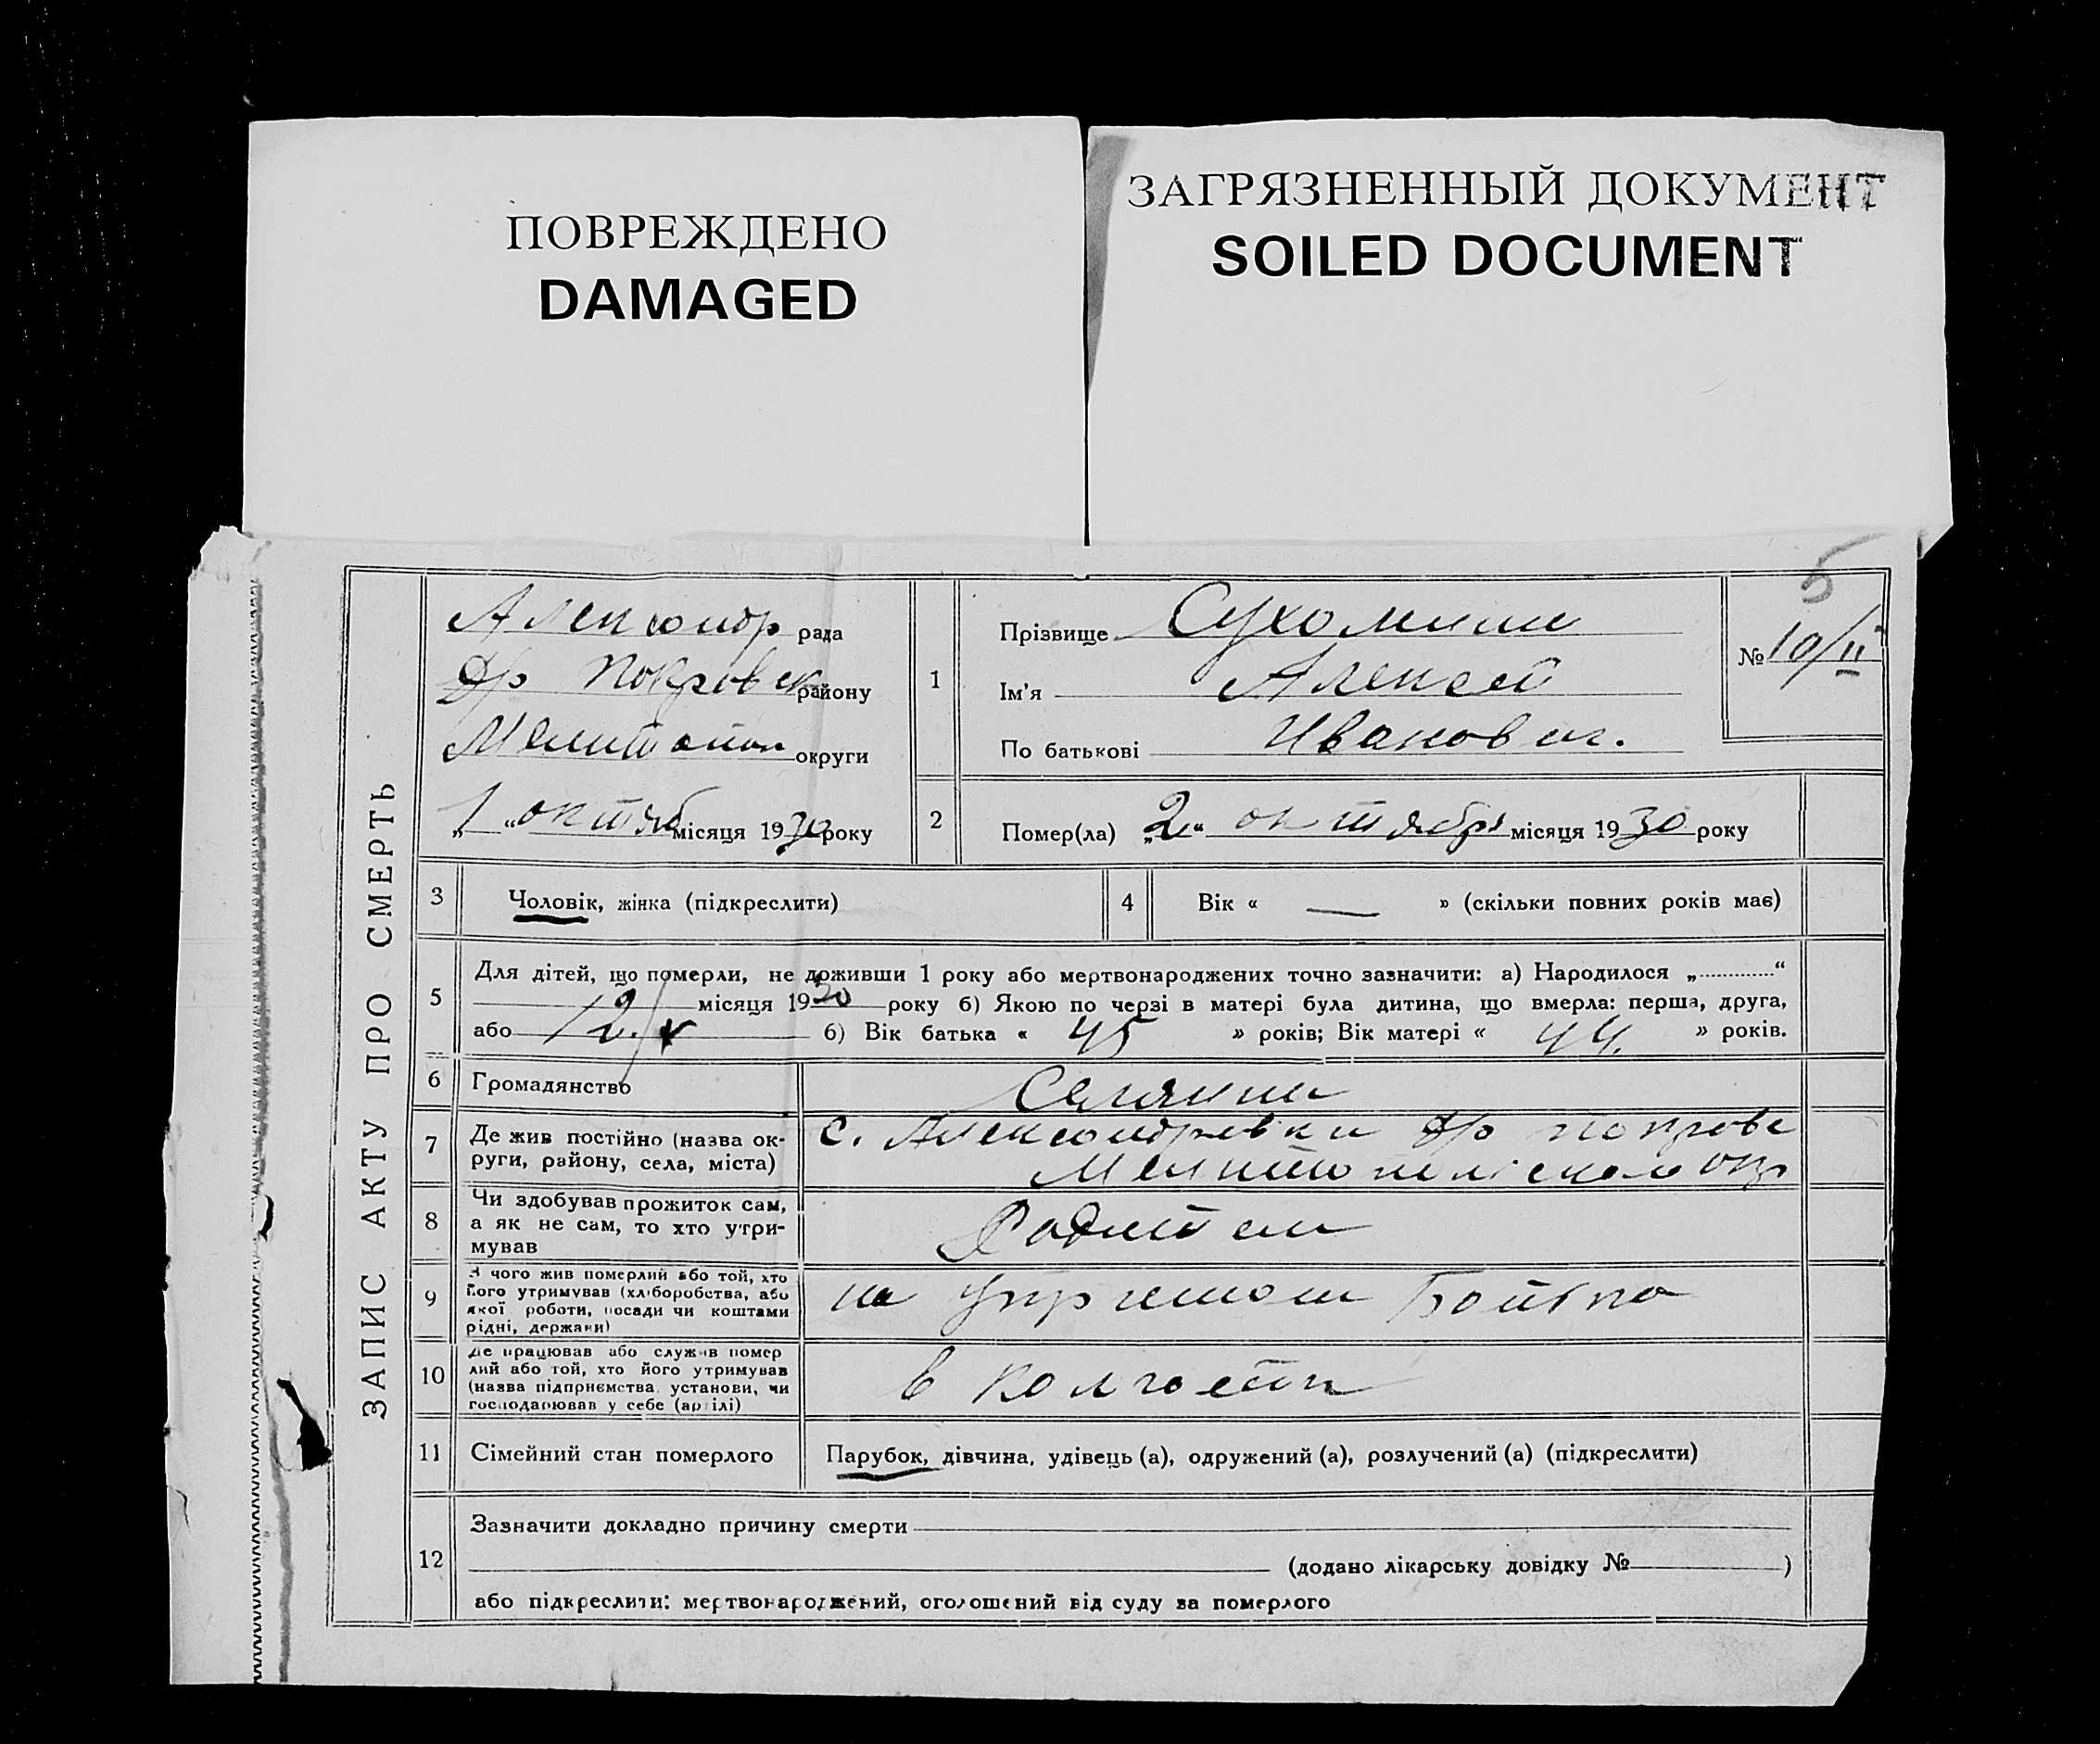 ПОВРЕЖДЕНО
DAMAGED
ЗАГРЯЗНЕННЫЙ ДОКУМЕНТ
SOILED DOCUMENT
5
ЗАПИС АКТУ ПРО СМЕРТЬ
Александр рада
Др Покровск району
Мелитопол округи
„1“ октяб місяця 1930 року
1
Прізвище Сухомлин
Ім'я Алексей
По батькові Иванович.
№ 10/II
2
Помер(ла) „2“ октября місяця 1930 року
3 Чоловік, жінка (підкреслити)
4 Вік « — » (скільки повних років має)
5 Для дітей, що померли, не доживши 1 року або мертвонароджених точно зазначити: а) Народилося „ “
місяця 1930 року б) Якою по черзі в матері була дитина, що вмерла: перша, друга,
або б) Вік батька « 45 » років; Вік матері « 44. » років.
6 Громадянство Селянин
7 Де жив постійно (назва ок-
руги, району, села, міста)
с. Александровки Др покровс
Мелитопольского окр
8 Чи здобував прожиток сам,
а як не сам, то хто утри-
мував
Родители
9 З чого жив померлий або той, хто
його утримував (хліборобства, або
якої роботи, посади чи коштами
рідні, держави)
на
10 Де працював або служив помер
лий або той, хто його утримував
(назва підприємства, установи, чи
господарював у себе (артілі)
в
11 Сімейний стан померлого Парубок, дівчина, удівець (а), одружений (а), розлучений (а) (підкреслити)
12 Зазначити докладно причину смерти
(додано лікарську довідку № )
або підкреслити: мертвонароджений, оголошений від суду за померлого